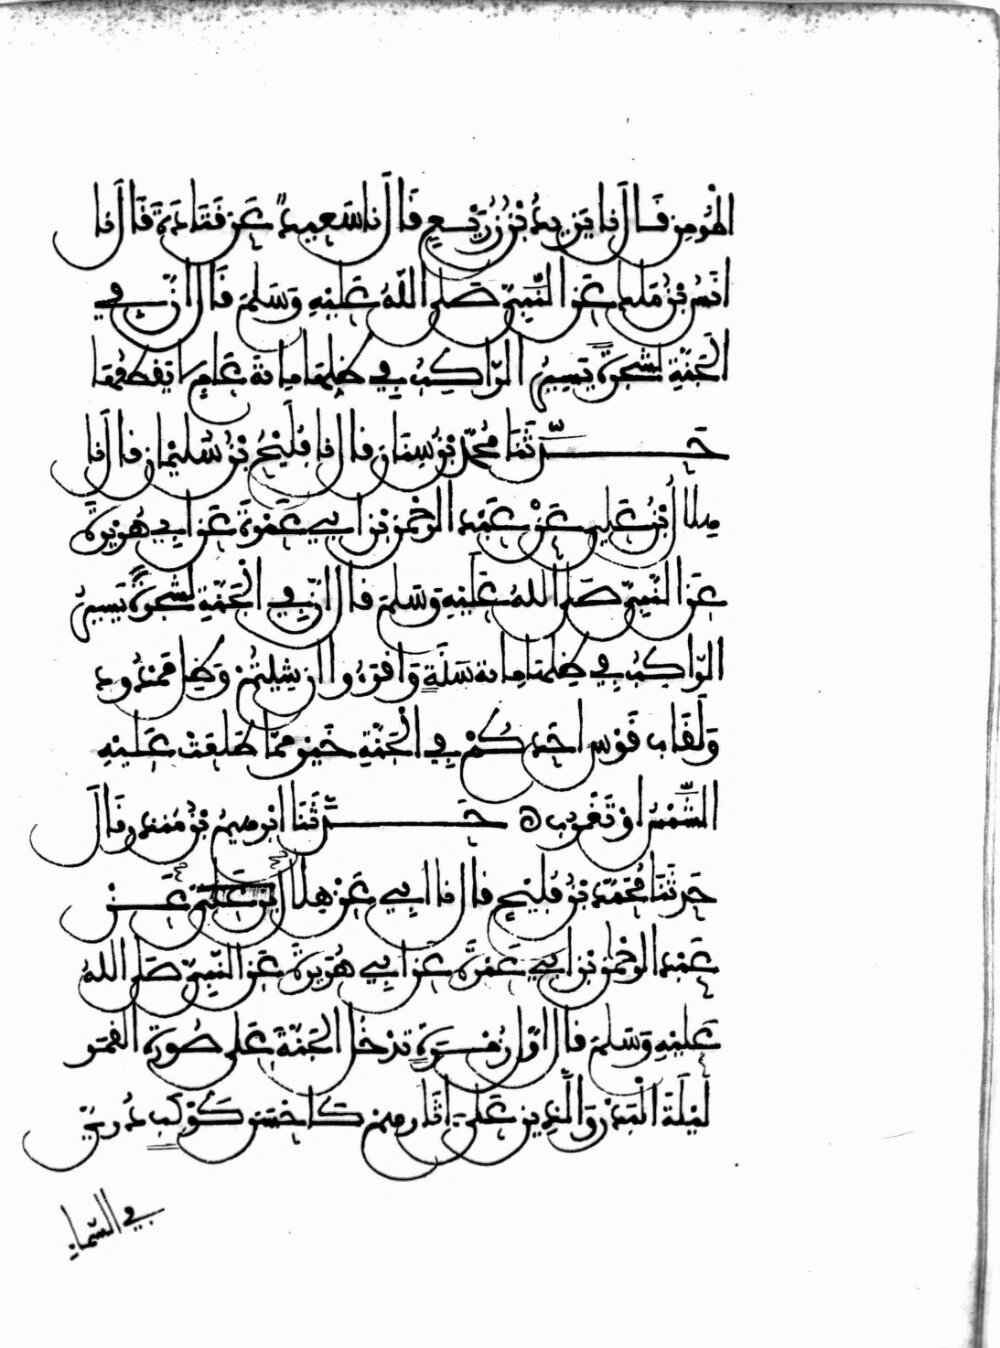 المُومِنِ قَالَ نا يَزِيدُ بْنُ زُرَيْعٍ قَالَ نا سَعِيدٌ عَن قَتَادَةَ قَالَ نا
انَسُ بْنُ مَلِكٍ عَنِ النَّبِيّ صَلى اللَّهُ عَلَيْهِ وَسَلمَ قَالَ انَّ فِي
الجَنَّةِ لَشَجَرَةً يَسِيرُ الرَّاكِبُ فِي ظِلِّهَا مِائَةَ عَامٍ لا يَقْطَعُهَا
حَدَّثَنَا مُحَمَّدُ بْنُ سِنَان قال نا فُلَيْحُ بْنُ سُلَيْمان قال نا
هِلالُ بْنُ عَلِي عَنْ عَبْدِ الرَّحْمن بْنِ ابِي عَمْرَةَ عَن ابِي هُرَيْرَةَ
عَنِ النَّبِيّ صَلى اللهُ عَلَيْهِ وَسَلمَ قال انَّ فِي الْجَنَّةِ لَشَجَرَةً يَسِيرُ
الرَّاكِبُ فِي ظِلِّهَا مِائَة سَنَةٍ وَاقْرَءُوا ان شِيتُمْ وَظِلٍّ مَمْدُودٍ
وَلَقَابُ قَوْسِ احَدِكُمْ فِي الْجَنَّةِ خَيْرٌ مِمَّا طَلَعَتْ عَلَيْهِ
الشَّمْسُ اوْ تَغْرُبُ ه حَدَّثَنَا ابْرهِيمُ بْنُ مُنْذِرٍ قَالَ
حَدثَنَا مُحَمَّدُ بْنُ فُلَيْحٍ قال نا ابِي عَنْ هِلالِ بْنِ عَلِيٍّ عَنْ
عَبْدِ الرَّحْمنِ بْنِ ابِي عَمْرَةَ عَن ابِي هُرَيْرَةَ عَنِ النَّبِيّ صَلى اللهُ
عَلَيْهِ وَسَلمَ قال اوَّلُ زُمْرَةٍ تَدْخُلُ الجَنَّةَ عَلَى صُورَةِ القَمَر
لَيْلَةَ الْبَدْرِ وَالَّذِينَ عَلَى اثَارِهِمْ كَاحْسَنِ كَوْكَبٍ دُرِيّ
فِي السَّمَاءِ